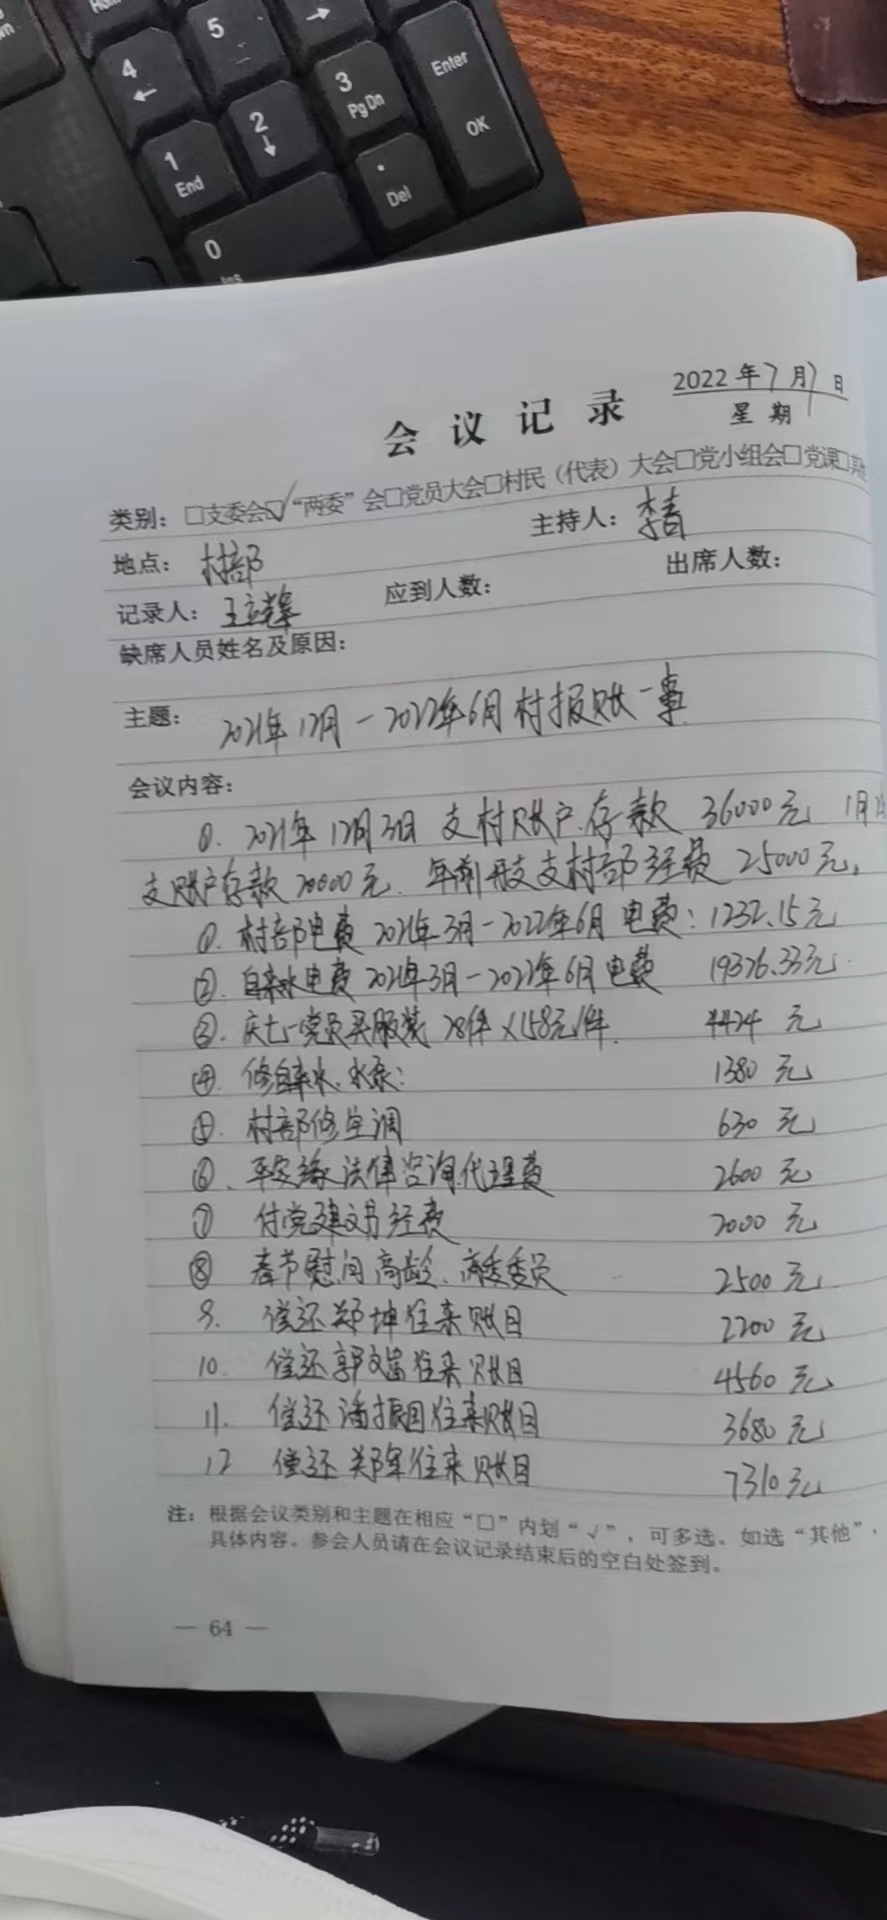 5
→
4
←
3
Pg Dn
Enter
OK
2
↓
1
End
.
Del
0
Ins
2022年7月7日
会议记录
星期
类别：□支委会☑“两委”会□党员大会□村民（代表）大会□党小组会□党课□其他
地点：村部 主持人：李青
记录人：王立辉 应到人数： 出席人数：
缺席人员姓名及原因：
主题：2021年12月－2022年6月村报账一事
会议内容：
①. 2021年12月3日 支村账户存款 36000元 1月
支账户存款20000元. 年前 支村部经费25000元,
①. 村部电费 2021年3月－2022年6月 电费：1232.15元
②. 自来水电费 2021年3月－2022年6月电费 19326.33元
③. 庆七一党员买服装 28件×158元/件. 4424 元
④. 修自来水.水泵： 1380 元
⑤. 村部修空调 630 元
⑥. 平安 法律咨询代理费 2600 元
⑦ 付党建 经费 2000 元
⑧ 春节慰问高龄、 委员 2500 元
9. 偿还郑坤往来账目 2200 元
10. 偿还郭文 往来账目 4560 元
11. 偿还潘振国往来账目 3680 元
12 偿还郑军往来账目 7310元
注：根据会议类别和主题在相应“□”内划“√”，可多选。如选“其他”，
具体内容。参会人员请在会议记录结束后的空白处签到。
— 64 —